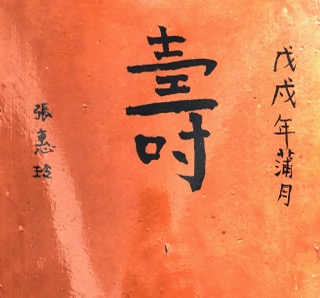 戊戌年蒲月
壽
張惠玲